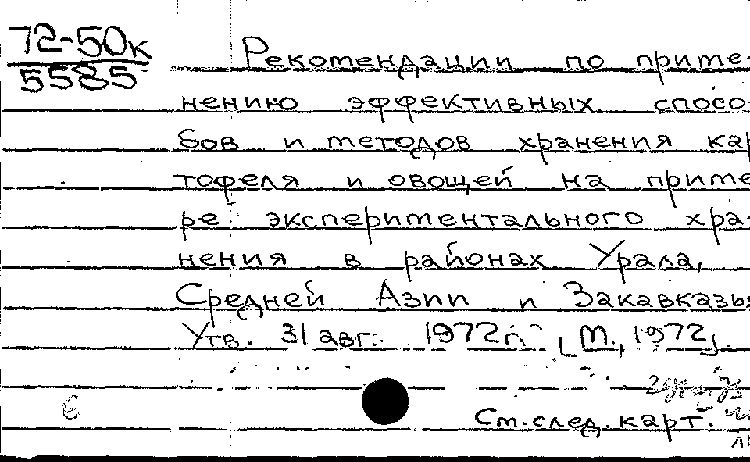 72-50к
5585
Рекомендации по приме-
нению эффективных спосо
бов и методов хранения кар
тофеля и овощей на приме
ре экспериментального хра-
нения в районах Урала,
Средней Азии и Закавказья
Утв. 31 авг. 1972 г. [М., 1972].
См. след. карт.